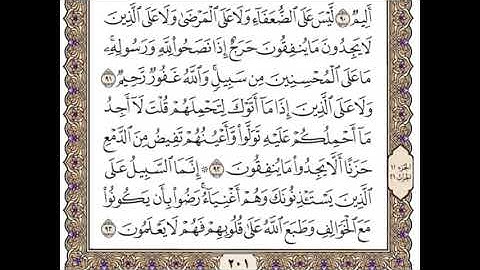 أَلِيمٌ ۝٩٠ لَّيْسَ عَلَى ٱلضُّعَفَآءِ وَلَا عَلَى ٱلْمَرْضَىٰ وَلَا عَلَى ٱلَّذِينَ
لَا يَجِدُونَ مَا يُنفِقُونَ حَرَجٌ إِذَا نَصَحُوا۟ لِلَّهِ وَرَسُولِهِۦ ۚ
مَا عَلَى ٱلْمُحْسِنِينَ مِن سَبِيلٍ ۚ وَٱللَّهُ غَفُورٌ رَّحِيمٌ ۝٩١
وَلَا عَلَى ٱلَّذِينَ إِذَا مَآ أَتَوْكَ لِتَحْمِلَهُمْ قُلْتَ لَآ أَجِدُ
مَآ أَحْمِلُكُمْ عَلَيْهِ تَوَلَّوا۟ وَّأَعْيُنُهُمْ تَفِيضُ مِنَ ٱلدَّمْعِ
حَزَنًا أَلَّا يَجِدُوا۟ مَا يُنفِقُونَ ۝٩٢ ۞ إِنَّمَا ٱلسَّبِيلُ عَلَى
ٱلَّذِينَ يَسْتَـْٔذِنُونَكَ وَهُمْ أَغْنِيَآءُ ۚ رَضُوا۟ بِأَن يَكُونُوا۟
مَعَ ٱلْخَوَالِفِ وَطَبَعَ ٱللَّهُ عَلَىٰ قُلُوبِهِمْ فَهُمْ لَا يَعْلَمُونَ ۝٩٣
٢٠١